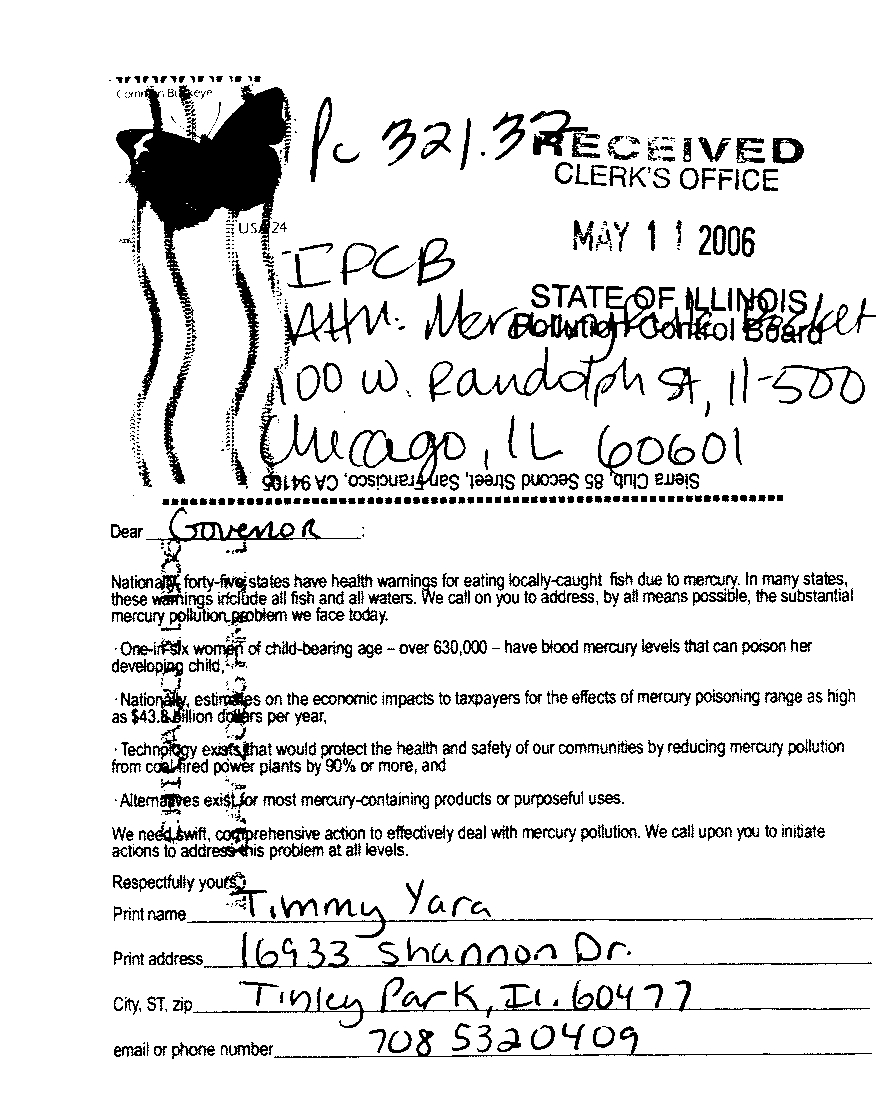 Common Buckeye
USA 24
Pc 321.37
RECEIVED
CLERK'S OFFICE
MAY 11 2006
STATE OF ILLINOIS
Pollution Control Board
IPCB
Attn: Mercury Rule Docket
100 W. Randolph St, 11-500
Chicago, IL 60601
Sierra Club, 85 Second Street, San Francisco, CA 94105
Dear Governor :
Nationally, forty-five states have health warnings for eating locally-caught fish due to mercury. In many states,
these warnings include all fish and all waters. We call on you to address, by all means possible, the substantial
mercury pollution problem we face today.
· One-in-six women of child-bearing age – over 630,000 – have blood mercury levels that can poison her
developing child,
· Nationally, estimates on the economic impacts to taxpayers for the effects of mercury poisoning range as high
as $43.8 billion dollars per year,
· Technology exists that would protect the health and safety of our communities by reducing mercury pollution
from coal-fired power plants by 90% or more, and
· Alternatives exist for most mercury-containing products or purposeful uses.
We need swift, comprehensive action to effectively deal with mercury pollution. We call upon you to initiate
actions to address this problem at all levels.
Respectfully yours,
Print name Timmy Yara
Print address 16933 Shannon Dr.
City, ST, zip Tinley Park, IL. 60477
email or phone number 708 5320409